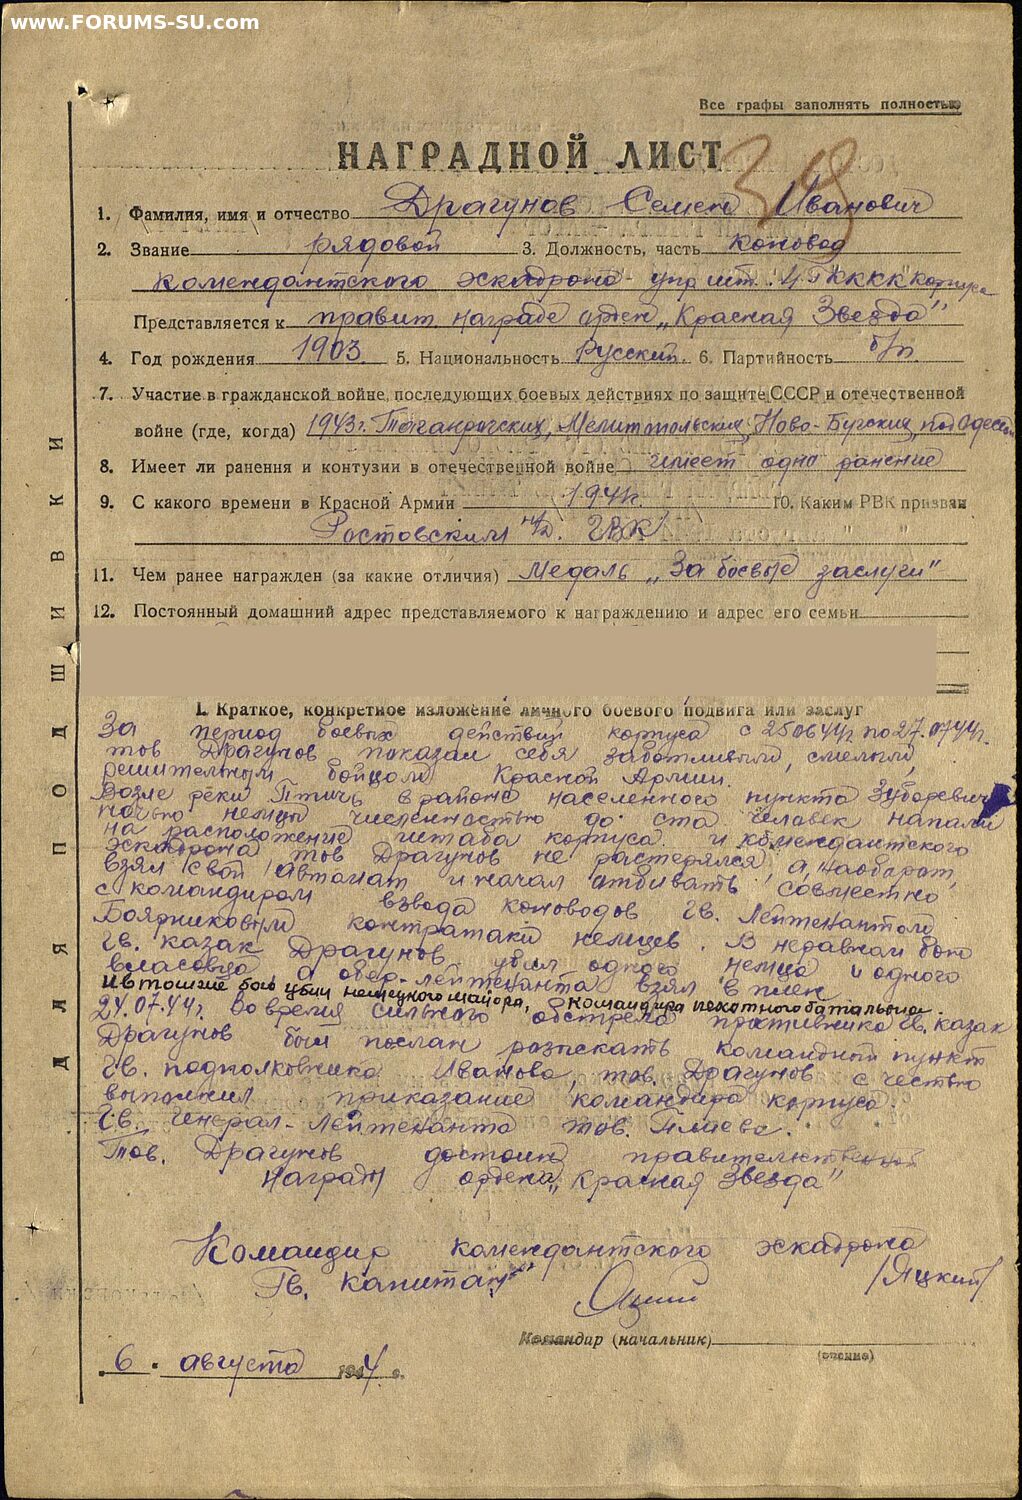 www.FORUMS-SU.com
Все графы заполнять полностью
НАГРАДНОЙ ЛИСТ
39
1. Фамилия, имя и отчество Драгунов Семен Иванович
2. Звание рядовой 3. Должность, часть коновод
комендантского эскадрона упр шт. 4 ГККККорпуса
Представляется к правит. награде орден „Красная Звезда"
4. Год рождения 1903. 5. Национальность Русский. 6. Партийность б/п.
7. Участие в гражданской войне, последующих боевых действиях по защите СССР и отечественной
войне (где, когда) 1943г. Таганрогских, Мелитопольских, Ново-Бугских, под Одессой
8. Имеет ли ранения и контузии в отечественной войне имеет одно ранение
9. С какого времени в Красной Армии 1941г. 10. Каким РВК призван
Ростовским н/Д. ГВК
11. Чем ранее награжден (за какие отличия) Медаль „За боевые заслуги"
12. Постоянный домашний адрес представляемого к награждению и адрес его семьи
I. Краткое, конкретное изложение личного боевого подвига или заслуг
За период боевых действий корпуса с 250644г по 27.0744г.
тов Драгунов показал себя заботливым, смелым,
решительным бойцом Красной Армии.
Возле реки Птичь в районе населенного пункта Зубаревичи
ночью немцы численностью до ста человек напали
на расположение штаба корпуса и комендантского
эскадрона тов Драгунов не растерялся, а, наоборот,
взял свой автомат и начал отбивать совместно
с командиром взвода коноводов гв. Лейтенантом
Боярниковым контратаки немцев. В неравном бою
гв. казак Драгунов убил одного немца и одного
власовца а обер-лейтенанта взял в плен
и в том же бою убил немецкого майора, командира пехотного батальона.
24.07.44г. Во время сильного обстрела противника гв. казак
Драгунов был послан разыскать командный пункт
гв. подполковника Иванова, тов. Драгунов с честью
выполнил приказание командира корпуса
Гв. Генерал-Лейтенанта тов. Плиева.
Тов. Драгунов достоин правительственной
награды ордена „Красная Звезда"
Командир комендантского эскадрона
Гв. капитан /Яцкий/
Командир (начальник)
(подпись)
6. августа 1944 г.
ДЛЯ ПОДШИВКИ